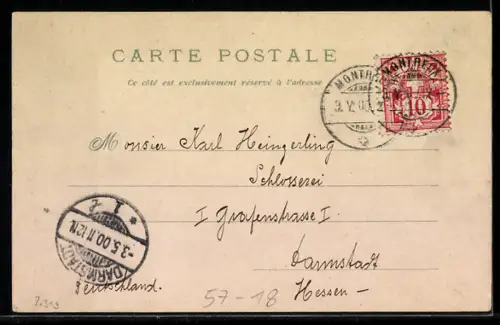 CARTE POSTALE
Ce côté est exclusivement réservé à l'adresse.
MONTREUX
3.V.00
MONTREUX
10
Monsier Karl Heingerling
Schlosserei
I Grafenstrasse I
Darmstadt
Hessen –
Deutschland.
DARMSTADT
-3.5.00.11-12N.
* I *
57-18